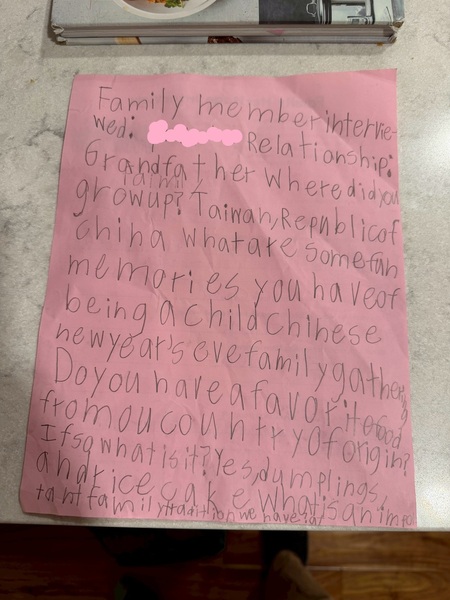 Family member intervie-
wed: Relationship:
Grandfather where did you
grow up? Taiwan, Republic of
china what are some fun
memories you have of
being a child chinese
new year's eve family gathering
Do you have a favorite food
from ou country of origin?
If so what is it? Yes, dumplings,
and rice cake. What is an impo
tant family tradition we have